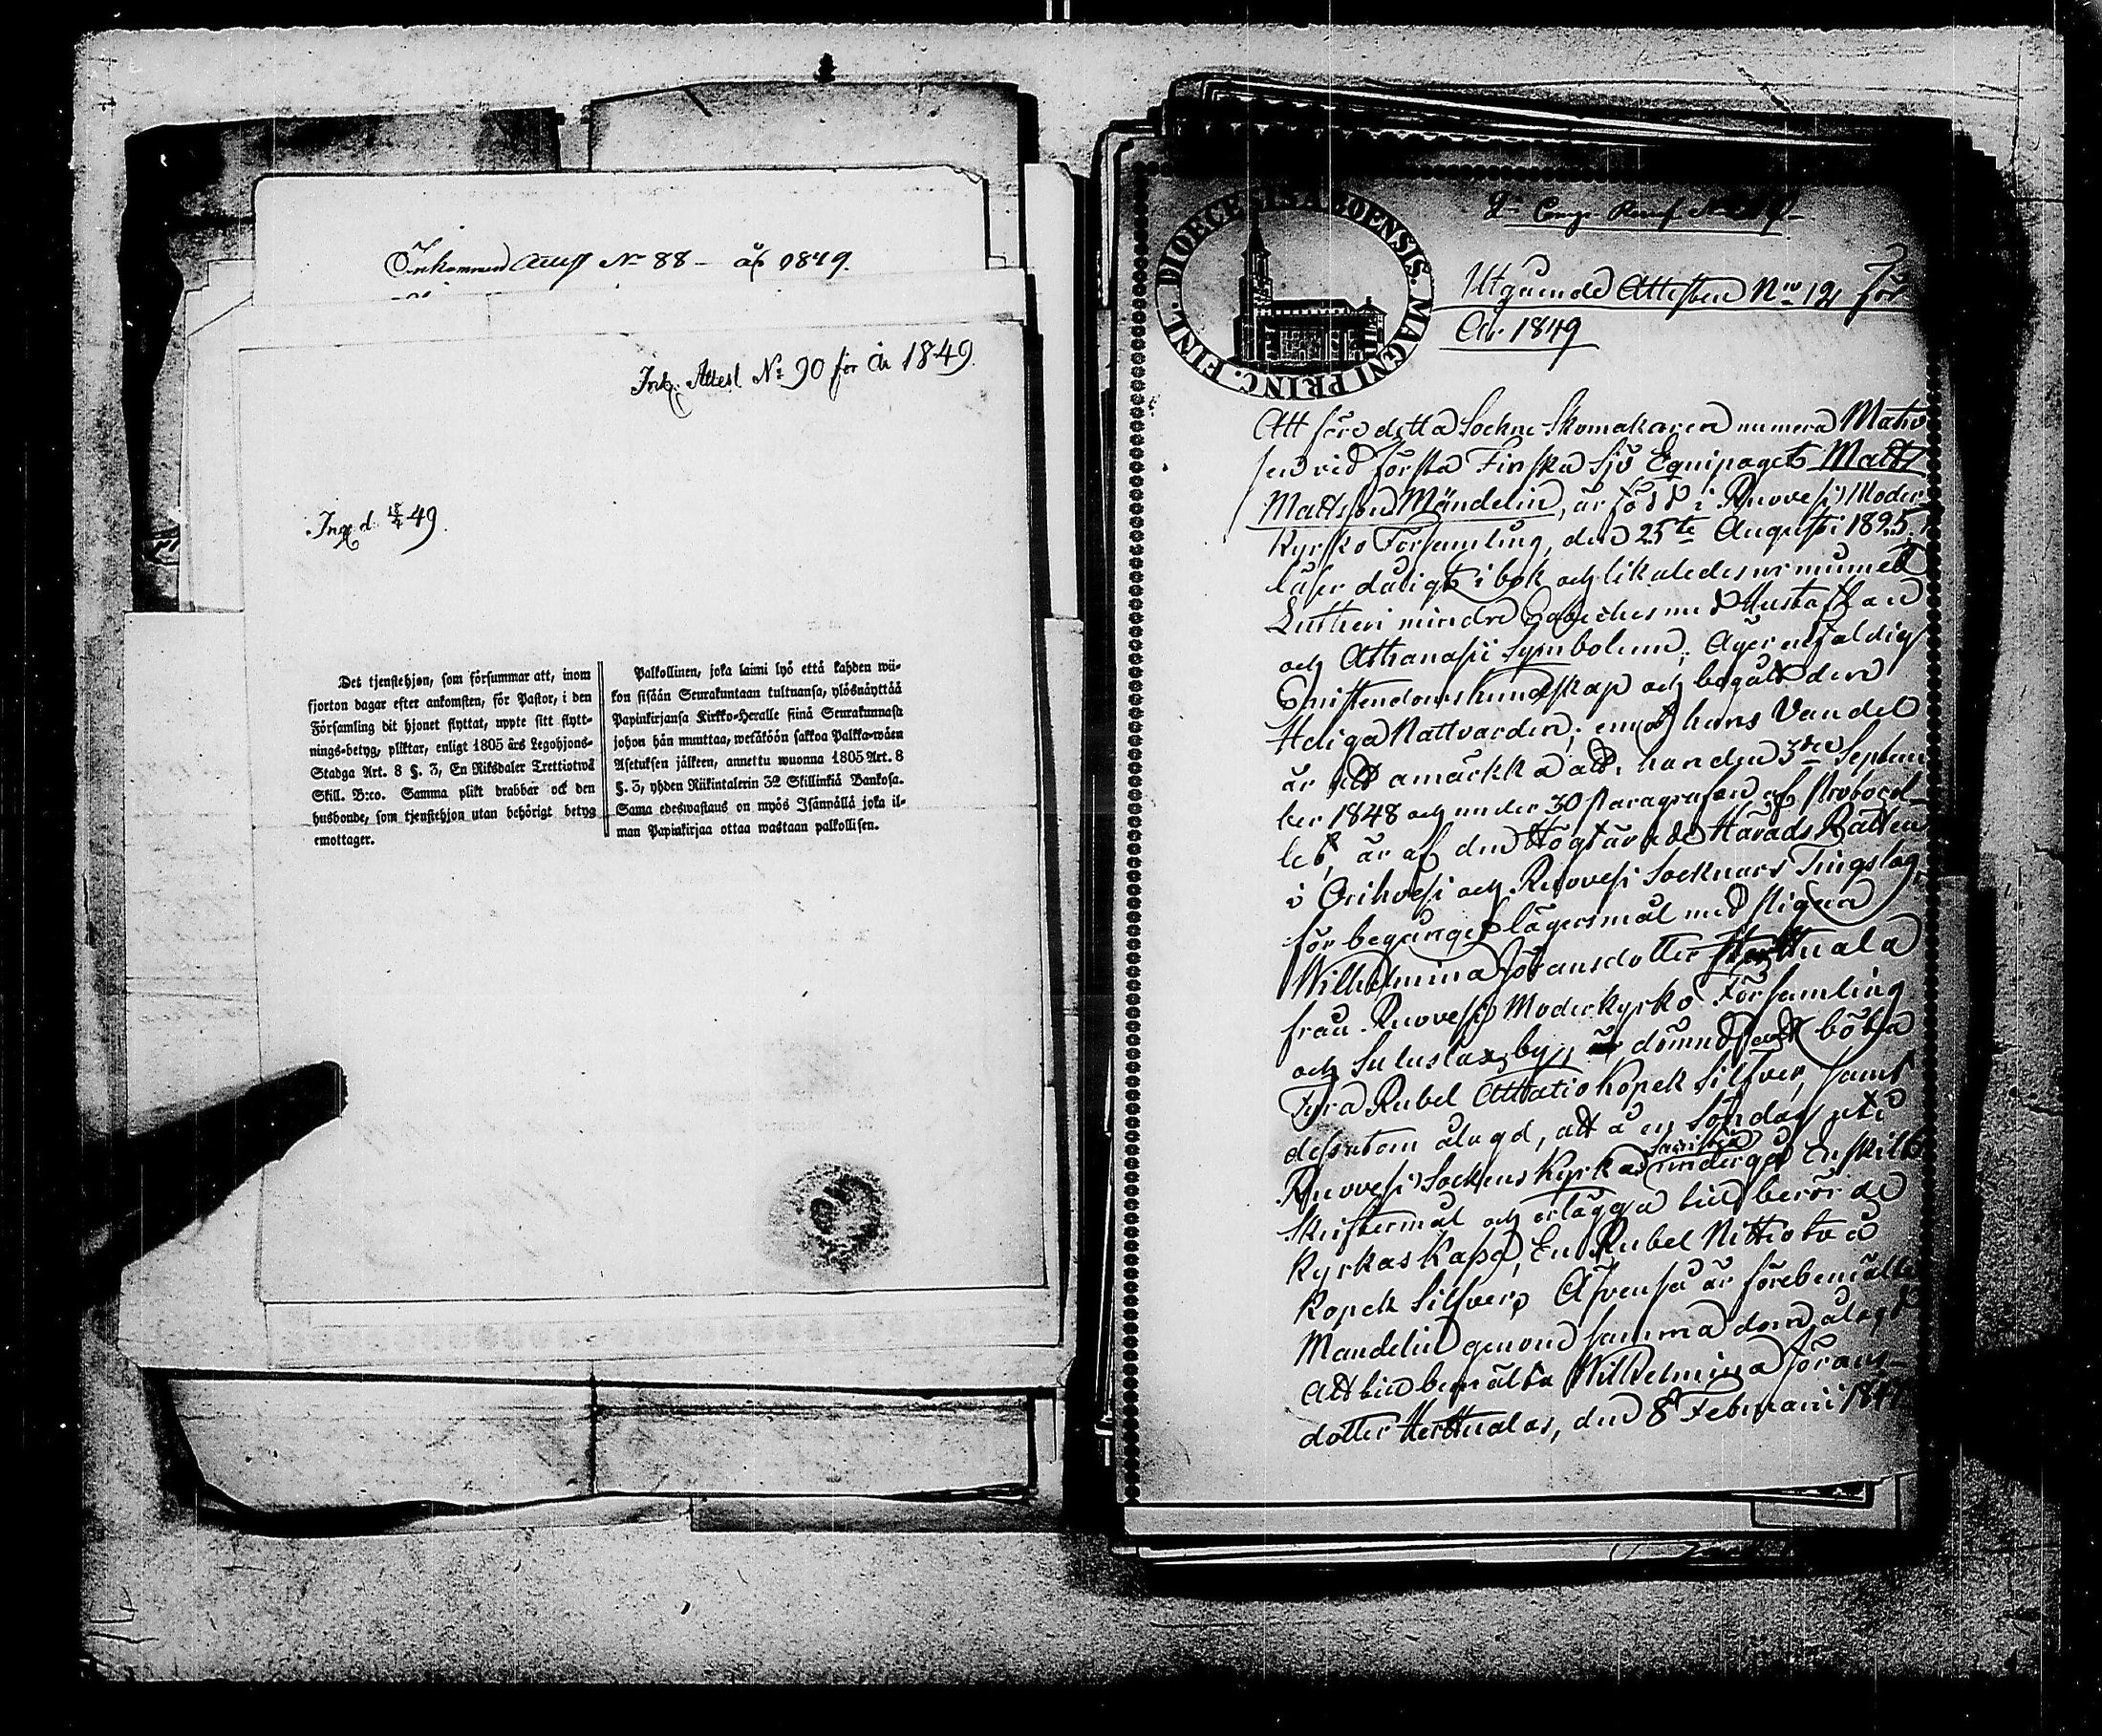 Inkommen Attest No 88 – åf 1849.
Ink. Attest No 90 för År 1849.
Ing. d. 18/4 49.
Det tjenstehjon, som försummar att, inom
fjorton dagar efter ankomsten, för Pastor, i den
Församling dit hjonet flyttat, uppte sitt flytt-
nings-betyg, pliktar, enligt 1805 års Legohjons-
Stadga Art. 8 §. 3, En Riksdaler Trettiotwå
Skill. B:co. Samma plikt drabbar ock den
husbonde, som tjenstehjon utan behörigt betyg
emottager.
Palkollinen, joka laimi lyö että kahden wii-
kon sisään Seurakuntaan tultuansa, ylösnäyttää
Papinkirjansa Kirkko-Heralle siinä Seurakunnasa
johon hän muuttaa, wetäköön sakkoa Palkka-wäen
Asetuksen jälkeen, annettu wuonna 1805 Art. 8
§. 3, yhden Riikintalerin 32 Skillinkiä Bankosa.
Sama edeswastaus on myös Isännällä joka il-
man Papinkirjaa ottaa wastaan palkollisen.
DIOECESIS ABOENSIS. MAGNI PRINC. FINL.
Utgående Attesten No 12 För
År 1849
Att före detta Sockne Skomakaren numera Matro
sen vid första Finska Sjö Equipaget Matts
Mattsson Mandelin, är född i Ruovesi Moder
kyrko Församling, den 25te Augusti 1825,
läser dåligt i bok och likaledes ur minnet
Lutheri mindre Cateches med Hustaflan
och Athanasii Symbolum; Äger enfaldig
Christendoms kundskap och begått den
Heliga Nattvarden; emot hans Vandel
är att anmärkka att, han den 3dje Septem
ber 1848 och under 30 Paragrafen af Protocol-
let, är af den Högtärade Härads Rätten
i Orihvesi och Ruovesi Socknars Tingslag,
för begånget lägersmål med Pigan
Wilhelmina Göransdotter Herttuala
från Ruovesi Moderkyrko Församling
och by, dömd att böta
Fyra Rubel Åttatio Kopek Silfver, samt
dessutom ålagd, att å en Söndag uti
Ruovesi Sockens Kyrka undergå Enskilt
Skriftermål och erlägga till berörde
Kyrkas Kassa, En Rubel Nittiotvå
Kopek Silfver; Äfvenså är förebemälte
Mandelin genom samma dom ålagd
att till bemälta Wilhelmina Görans-
dotter Herttualas, den 8 Februarii